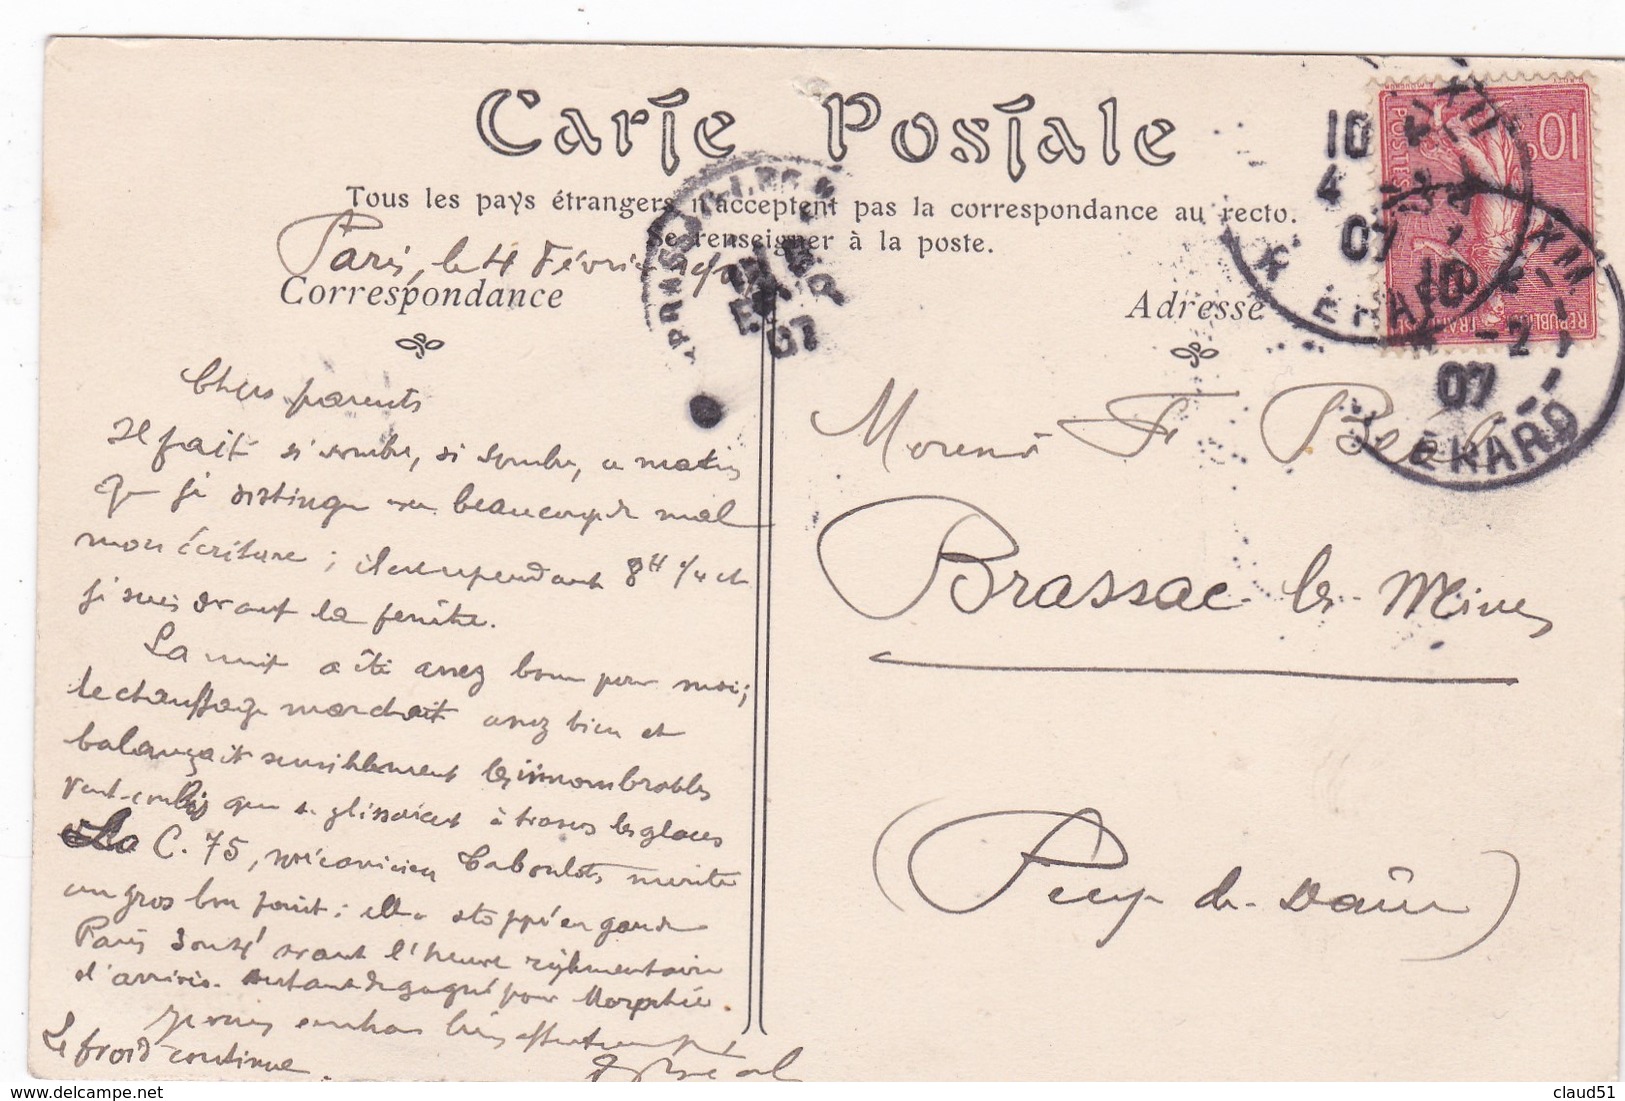 Carte Postale
Tous les pays étrangers n'acceptent pas la correspondance au recto.
Se renseigner à la poste.
Paris, le 4 Février
Correspondance
Adresse
10
4
07
POSTES
10c
REPUBLIQUE FRANÇAISE
XII
-2
07
ERARD
07
Chers parents
Il fait si sombre, si sombre, ce matin
que je distingue beaucoup mal
mon écriture ; il est cependant 8H 1/4 et
je suis devant la fenêtre.
La nuit a été assez bonne pour moi;
le chauffage marchait assez bien et
balançait sensiblement les innombrables
vents-coulis qui se glissaient à travers les glaces
La C. 75, mécanicien Taboulots mérite
un gros bon point : elle a stoppé en gare de
Paris avant l'heure réglementaire
d'arrivée. Autant de gagné pour Morphée.
Je vous embrasse bien affectueusement
Le froid continue.
Béal
F. Béal
Brassac-les-Mines
(Puy-de-Dôme)
claud51